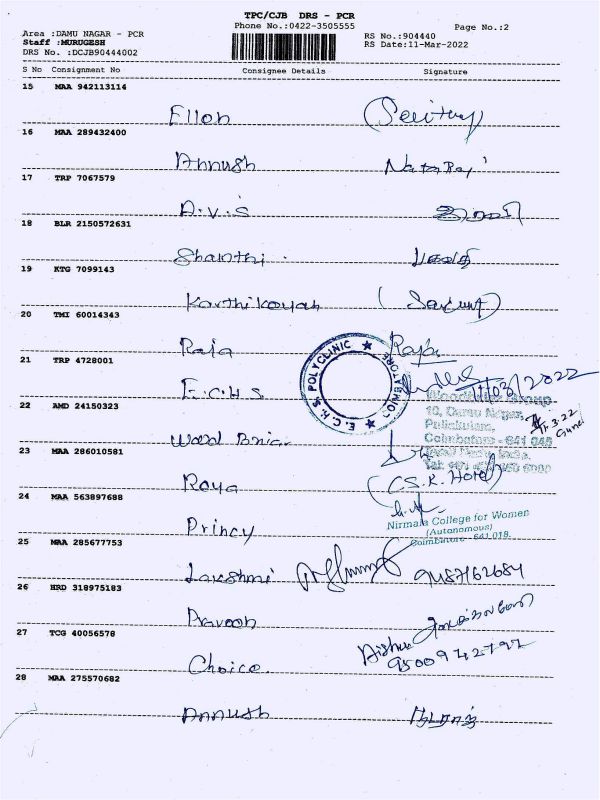 TPC/CJB DRS - PCR
Phone No.:0422-3505555
Page No.:2
Area :DAMU NAGAR - PCR
Staff :MURUGESH
DRS No. :DCJB90444002
RS No.:904440
RS Date:11-Mar-2022
S No Consignment No Consignee Details Signature
15 MAA 942113114
Ellen
16 MAA 289432400
Annush Nataraj
17 TRP 7067579
A.V.S
18 BLR 2150572631
Shanthi.
19 KTG 7099143
Karthikeyan
20 TMI 60014343
Raja Raja
21 TRP 4728001
E.C.H.S. POLYCLINIC ★ COIMBATORE ★
E.C.H.S 11/03/2022
22 AMD 24150323
Woodbriar Group
10, Damu Nagar,
Puliakulam,
Coimbatore - 641 045
Tamil Nadu, India.
11.3.22
23 MAA 286010581
Roya (C.S.R. Hotel)
24 MAA 563897688
Nirmala College for Women
(Autonomous)
Coimbatore - 641 018.
Princy
25 MAA 285677753
Lakshmi 9487162684
26 HRD 318975183
Praveen
27 TCG 40056578
Aishu
9500942792
Choice
28 MAA 275570682
Annush நடராஜ்